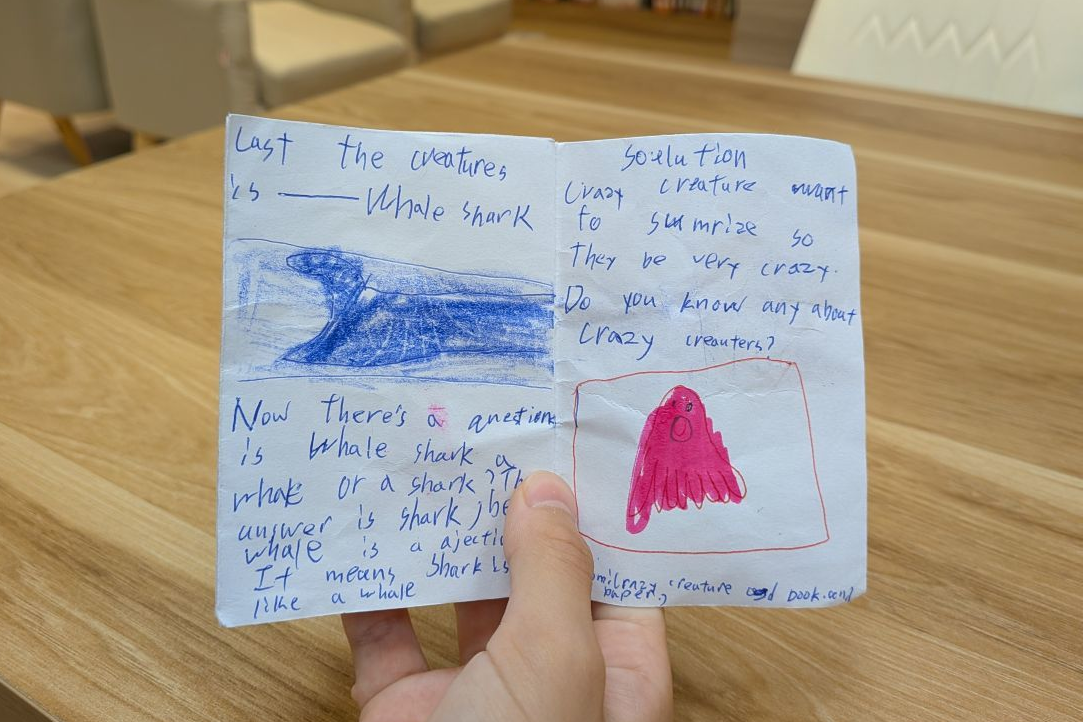 Last the creatures
is — Whale shark
Now there's a question
is Whale shark a
whale or a shark? Th
answer is shark, be
whale is a ajectio
It means shark is
like a whale
soulution
Crazy creature want
to sumrize so
They be very crazy.
Do you know any about
crazy creauters?
creature book. and
paper,